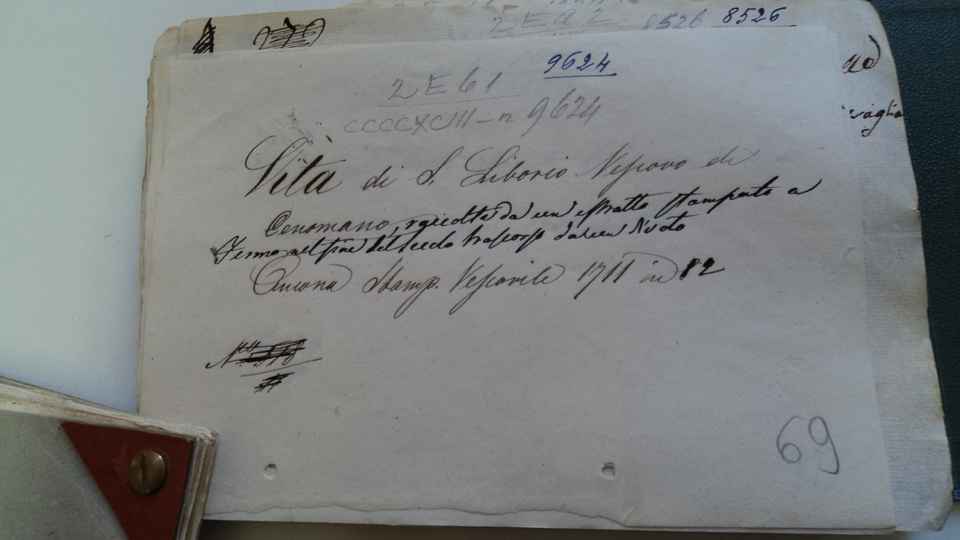 8526 8526
9624
2 E 61
CCCCXCIII - n 9624
Vita di S. Liborio Vescovo di
Cenomano, raccolta da un estratto stampato a
Fermo nel fine del secolo trascorso da un divoto
Ancona Stamp. Vescovile 1711 in 12
69